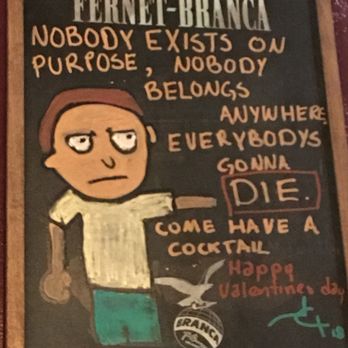 FERNET-BRANCA
NOBODY EXISTS ON
PURPOSE, NOBODY
BELONGS
ANYWHERE,
EVERYBODYS
GONNA
DIE.
COME HAVE A
COCKTAIL
Happy
Valentines day
BRANCA